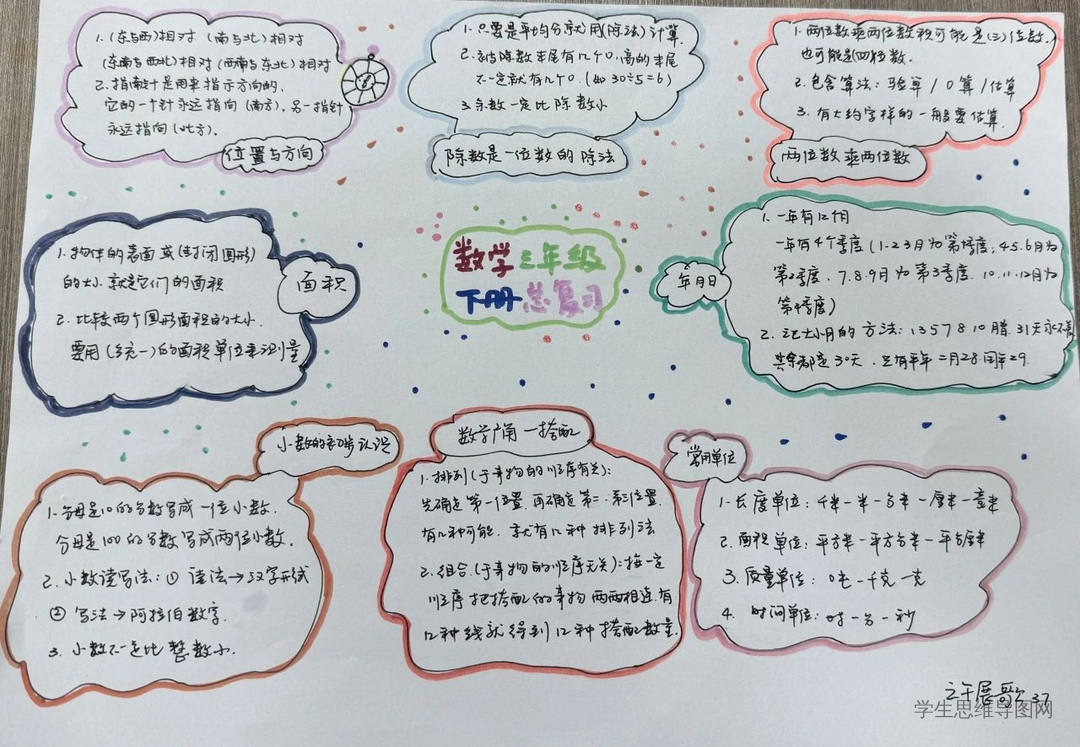 1. (东与西)相对 (南与北)相对
(东南与西北)相对 (西南与东北)相对
2. 指南针是用来指示方向的,
它的一个针永远指向(南方), 另一指针
永远指向(北方).
位置与方向
1. 只要是平均分就用(除法)计算.
2. 被除数末尾有几个0, 商的末尾
不一定就有几个0. (如 30÷5=6)
3. 余数一定比除数小
除数是一位数的除法
1. 两位数乘两位数积可能是(三)位数,
也可能是四位数.
2. 包含算法: 验算/口算/估算
3. 有大约字样的一般要估算.
两位数乘两位数
1. 物体的表面或(封闭图形)
的大小, 就是它们的面积
2. 比较两个图形面积的大小.
要用(统一)的面积单位来测量
面积
数学三年级
下册总复习
年月日
1. 一年有12个月
一年有4个季度(1.2.3月为第1季度, 4.5.6月为
第2季度, 7.8.9月为第3季度, 10.11.12月为
第4季度)
2. 记大小月的方法: 1 3 5 7 8 10 腊, 31天永不差
其余都是30天, 只有平年二月28闰年29.
小数的初步认识
1. 分母是10的分数写成一位小数,
分母是100的分数写成两位小数.
2. 小数读写法: ① 读法→汉字形式
② 写法→阿拉伯数字.
3. 小数不一定比整数小.
数学广角—搭配
1. 排列(与事物的顺序有关):
先确定第一个位置, 再确定第二、第三位置
有几种可能, 就有几种排列法
2. 组合(与事物的顺序无关): 按一定
顺序把搭配的事物两两相连, 有
几种线就得到几种搭配数量.
常用单位
1. 长度单位: 千米-米-分米-厘米-毫米
2. 面积单位: 平方米-平方分米-平方厘米
3. 质量单位: 吨-千克-克
4. 时间单位: 时-分-秒
展歌 37
学生思维导图网